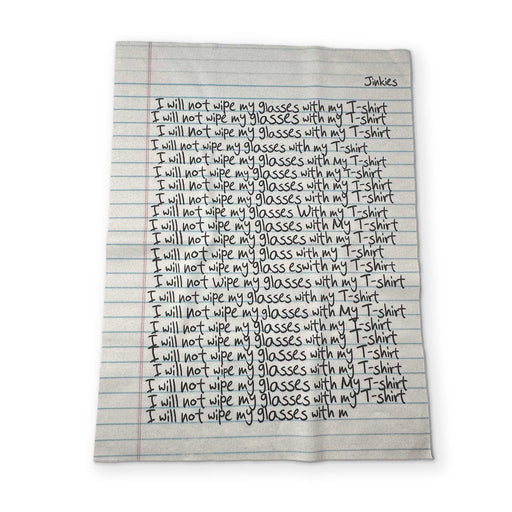 Jinkies
I will not wipe my glasses with my T-shirt
I will not wipe my glasses with my T-shirt
I will not wipe my glasses with my T-shirt
I will not wipe my glasses with my T-shirt
I will not wipe my glasses with My T-shirt
I will not wipe my glasses with my T-shirt
I will not wipe my glasses with my T-shirt
I will not wipe my glasses with my T-shirt
I will not wipe my glasses With my T-shirt
I will not wipe my glasses with My T-shirt
I will not wipe my glasses with my T-shirt
I will not wipe my glass with my T-shirt
I will not wipe my glass eswith my T-shirt
I will not Wipe my glasses with my T-shirt
I will not wipe my glasses with my T-shirt
I will not wipe my glasses with My T-shirt
I will not wipe my glasses with my T-shirt
I will not wipe my glasses with my T-shirt
I will not wipe my glasses with my T-shirt
I will not wipe my glasses with my T-shirt
I will not wipe my glasses with My T-shirt
I will not wipe my glasses with my T-shirt
I will not wipe my glasses with m